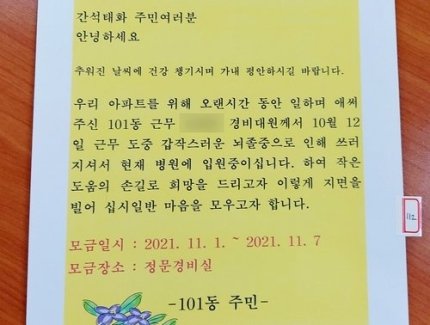 간석태화 주민여러분
안녕하세요
추워진 날씨에 건강 챙기시며 가내 평안하시길 바랍니다.
우리 아파트를 위해 오랜시간 동안 일하며 애써
주신 101동 근무 경비대원께서 10월 12
일 근무 도중 갑작스러운 뇌졸중으로 인해 쓰러
지셔서 현재 병원에 입원중이십니다. 하여 작은
도움의 손길로 희망을 드리고자 이렇게 지면을
빌어 십시일반 마음을 모우고자 합니다.
모금일시 : 2021. 11. 1. ~ 2021. 11. 7
모금장소 : 정문경비실
-101동 주민-